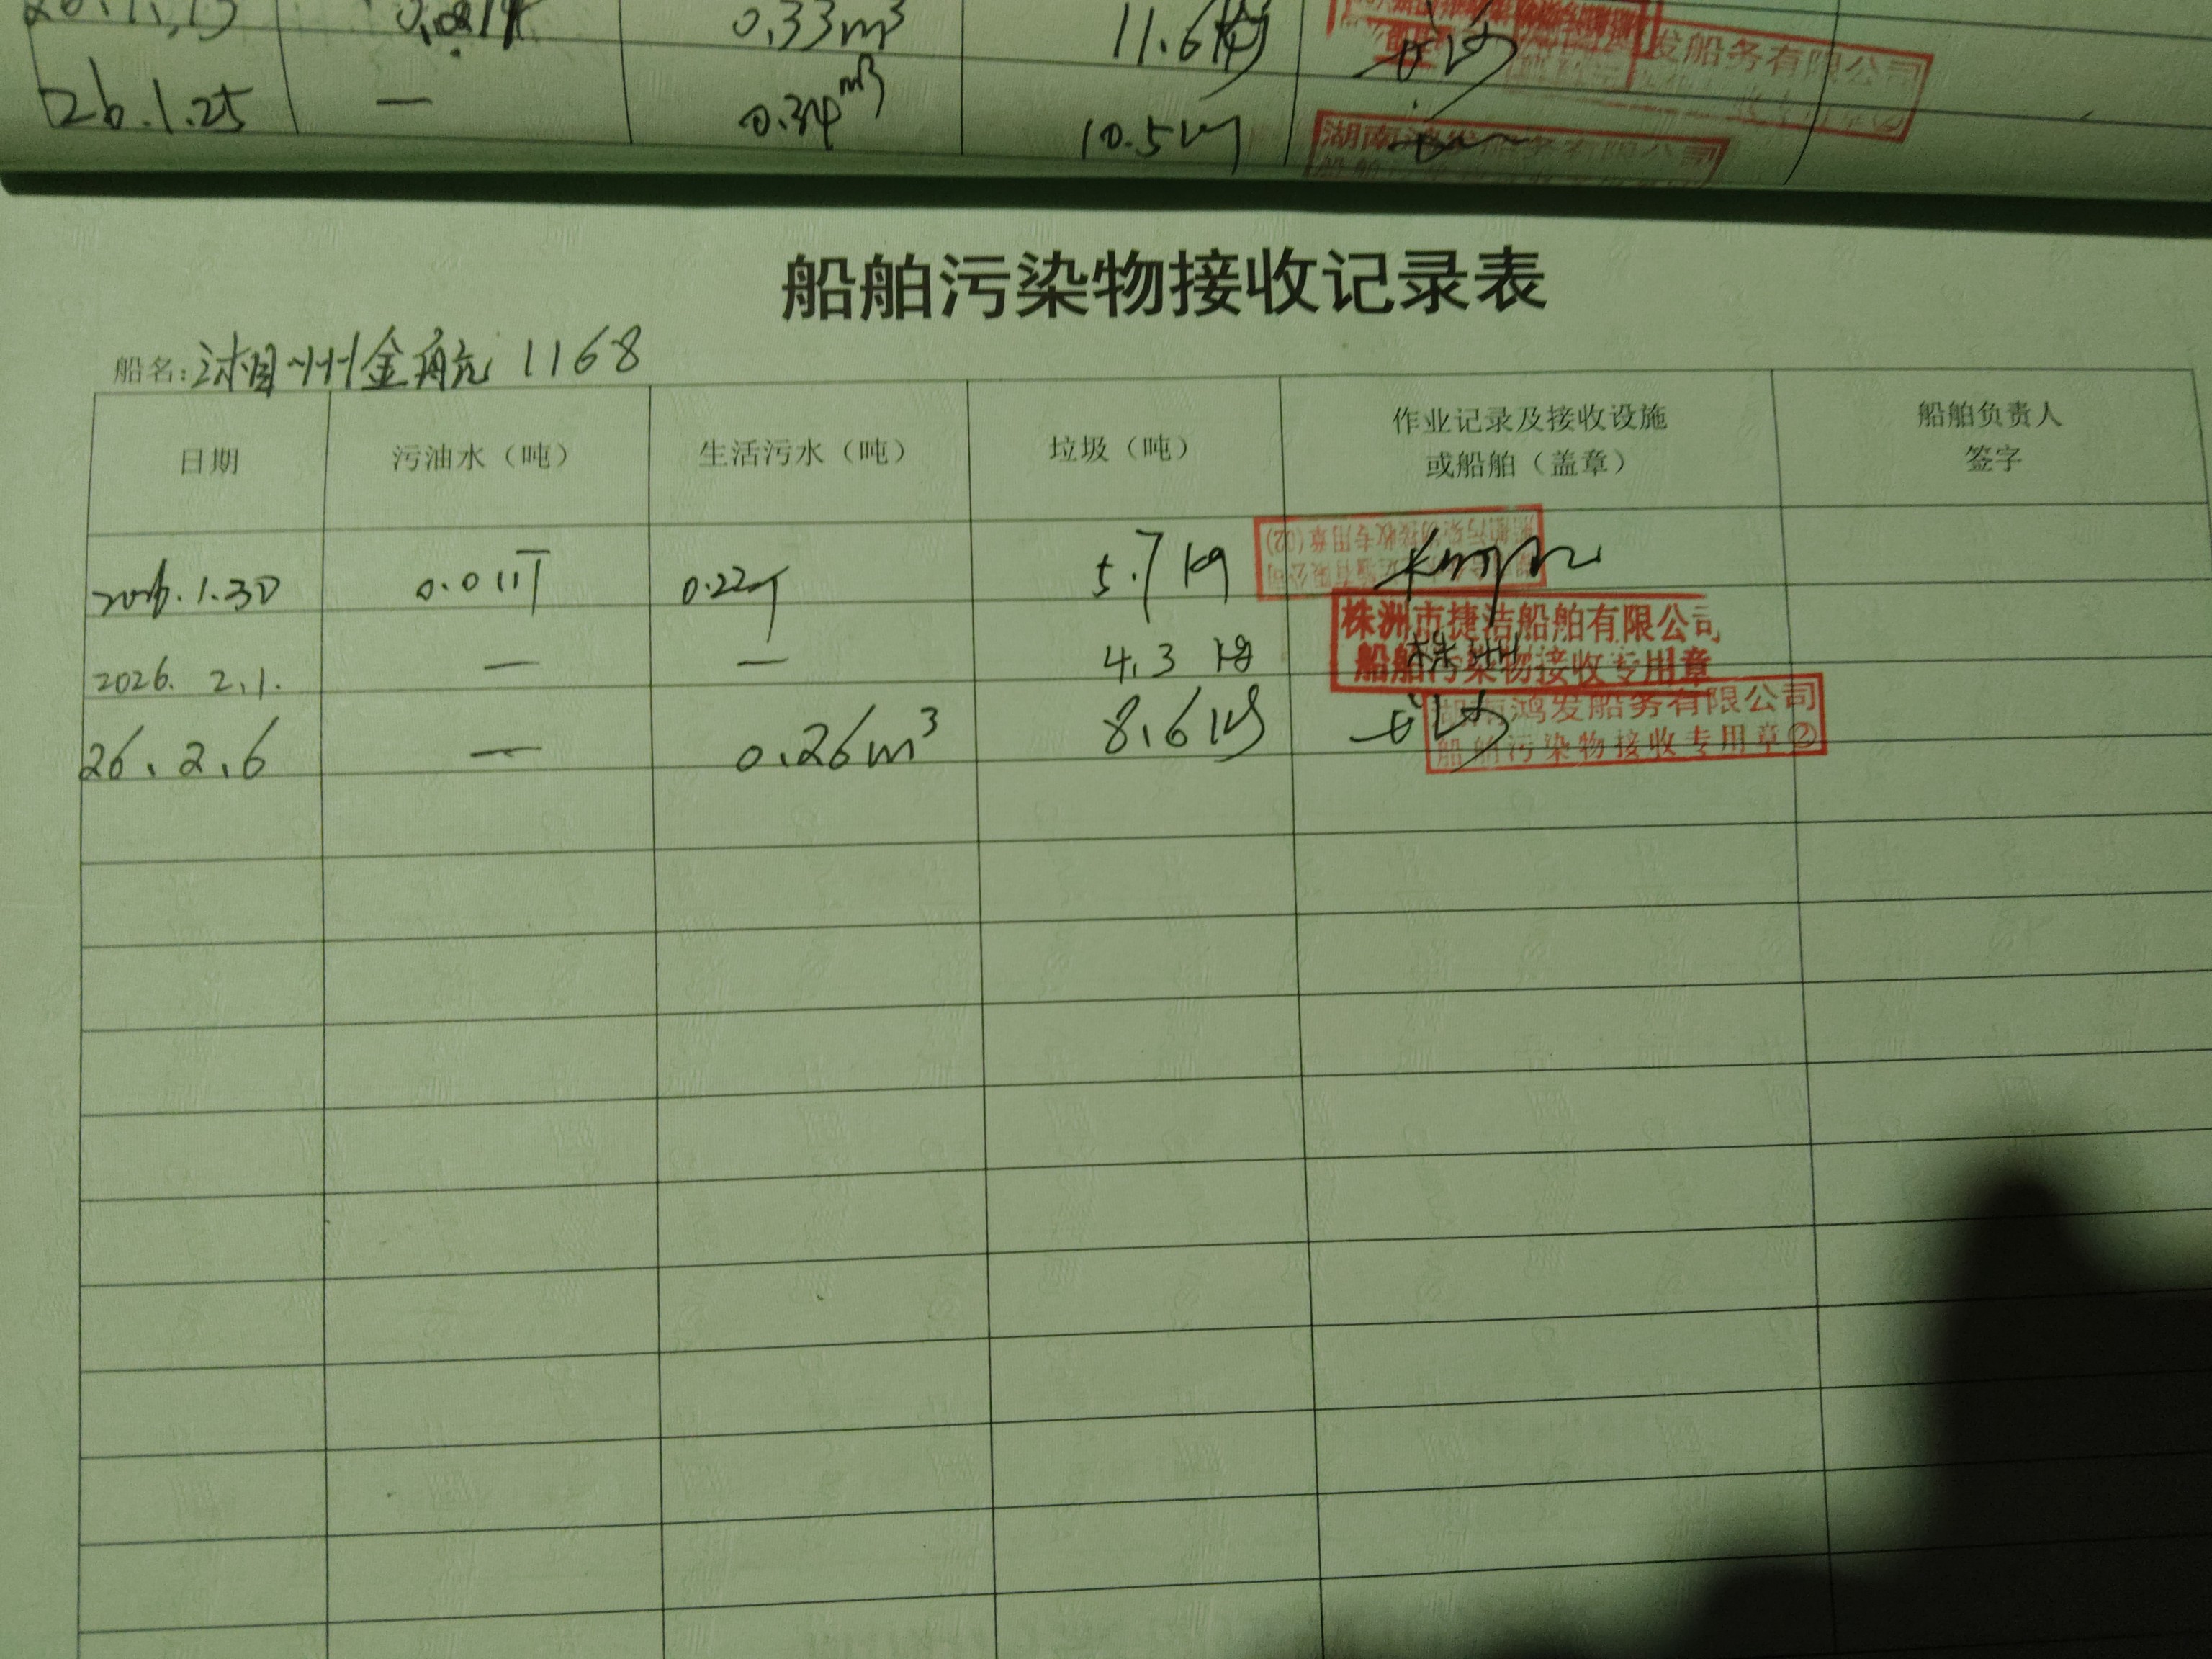 0.33m³ 11.6kg
发船务有限公司
26.1.25 — 0.34m³ 10.5kg
湖南鸿发船务有限公司
船舶污染物接收记录表
船名:湘州金航1168
日期 污油水（吨） 生活污水（吨） 垃圾（吨） 作业记录及接收设施或船舶（盖章） 船舶负责人签字
2026.1.30 0.01T 0.22T 5.7kg
船舶污染物接收专用章(02)
2026. 2.1. — — 4.3 kg 株洲
株洲市捷洁船舶有限公司
船舶污染物接收专用章
26.2.6 — 0.26m³ 8.6kg
湖南鸿发船务有限公司
船舶污染物接收专用章②